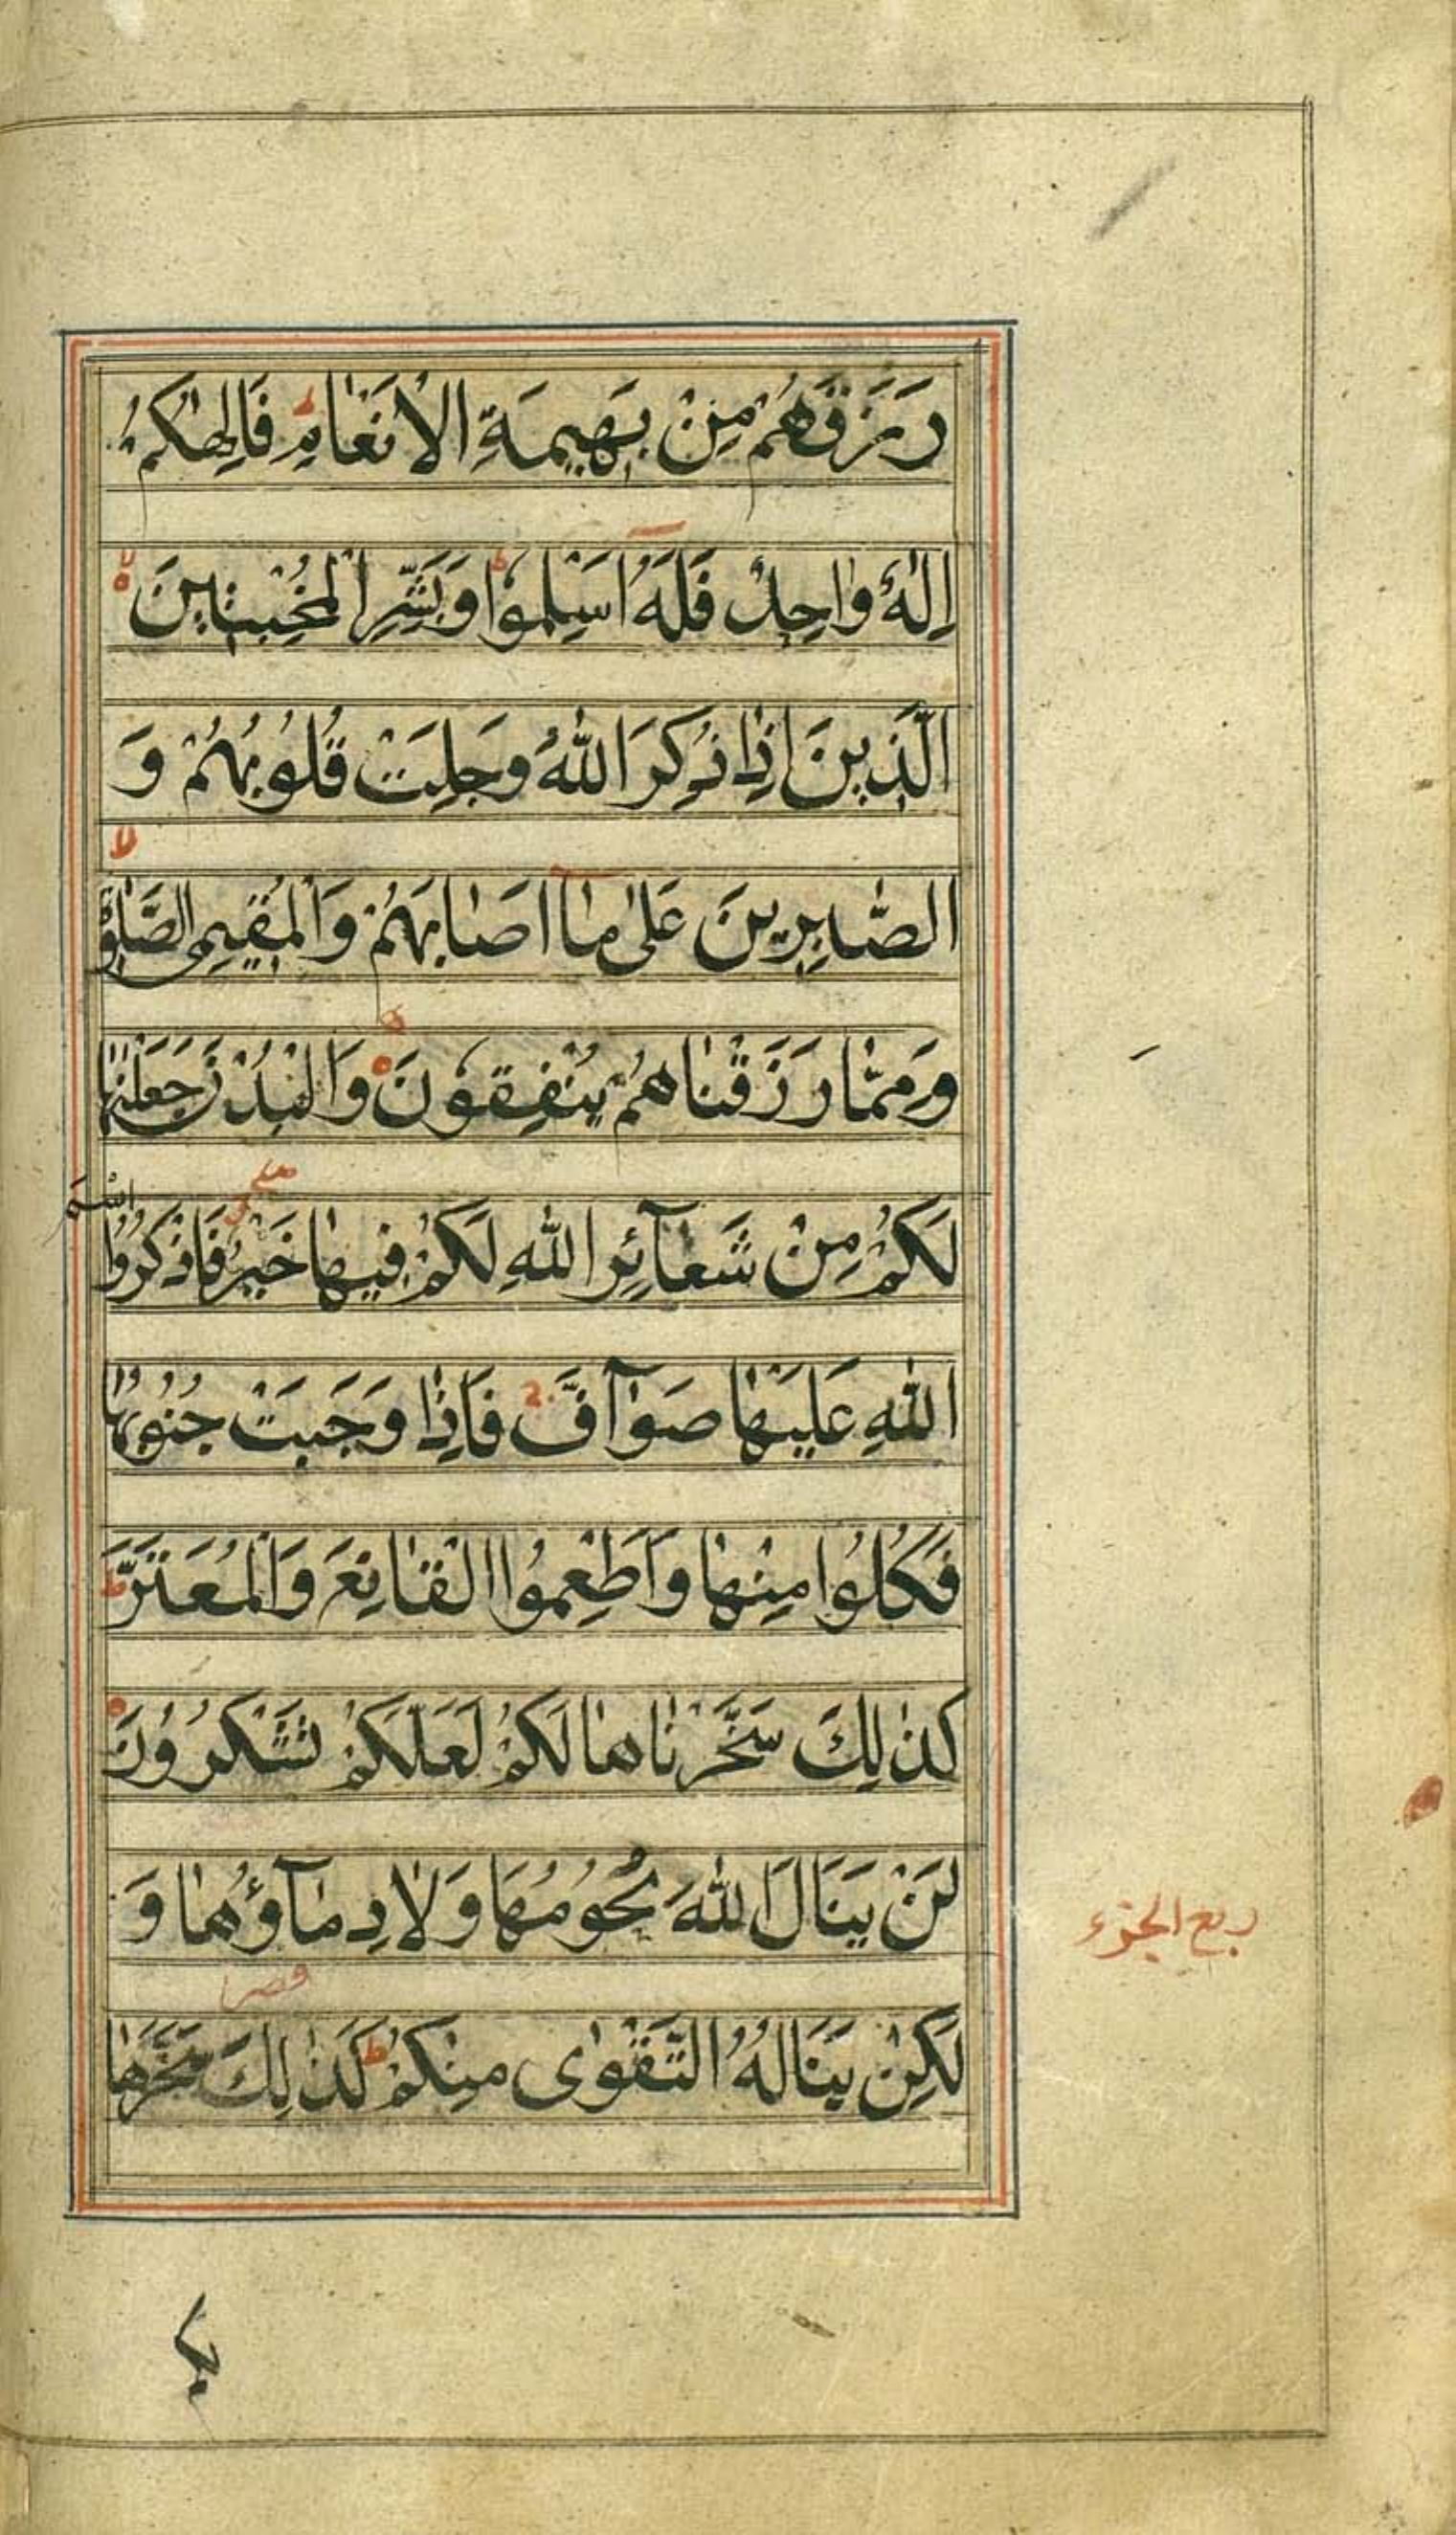 رَزَقَهُمْ مِنْ بَهِيمَةِ الْاَنْعَامِ فَاِلٰهُكُمْ
اِلٰهٌ وَاحِدٌ فَلَهُٓ اَسْلِمُوا ط وَبَشِّرِ الْمُخْبِتِينَ ه لا
الَّذِينَ اِذَا ذُكِرَ اللّٰهُ وَجِلَتْ قُلُوبُهُمْ وَ
الصَّابِرِينَ عَلٰى مَٓا اَصَابَهُمْ وَالْمُقِيمِى الصَّلٰوةِ لا
وَمِمَّا رَزَقْنَاهُمْ يُنْفِقُونَ ه وَالْبُدْنَ جَعَلْنٰهَا
لَكُمْ مِنْ شَعَٓائِرِ اللّٰهِ لَكُمْ فِيهَا خَيْرٌ فَاذْكُرُوا اسْمَ
اللّٰهِ عَلَيْهَا صَوَٓافَّ فَاِذَا وَجَبَتْ جُنُوبُهَا
فَكُلُوا مِنْهَا وَاَطْعِمُوا الْقَانِعَ وَالْمُعْتَرَّ ط
كَذٰلِكَ سَخَّرْنَاهَا لَكُمْ لَعَلَّكُمْ تَشْكُرُونَ ه
لَنْ يَنَالَ اللّٰهَ لُحُومُهَا وَلَا دِمَٓاؤُهَا وَ
لٰكِنْ يَنَالُهُ التَّقْوٰى مِنْكُمْ ط كَذٰلِكَ سَخَّرَهَا
ربع الجزء